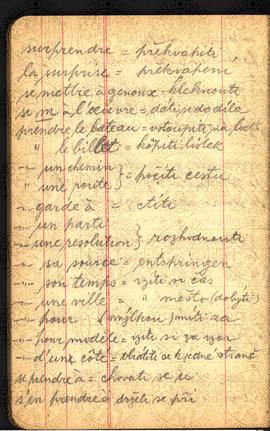 surprendre = překvapiti
la surprise = překvapení
se mettre à genoux = kleknouti
se m à l'oeuvre = dáti se do díla
prendre le bateau = vstoupiti na loď
" le billet = kúpiti lístek
-"- un chemin } = počíti cestu
" une route
-"- garde à = ctíti
-"- un parti
-"- une résolution } rozhodnouti
-"- sa source = entspringen
-"- son temps = vzíti si čas
-"- une ville = " město (dobýti)
-"- pour (mýlkou) míti za
-"- pour modèle = vzíti si za vzor
-"- d'une côté = obrátiti se k jedné straně
se prendre à = chovati se u
s'en prendre à držeti se při